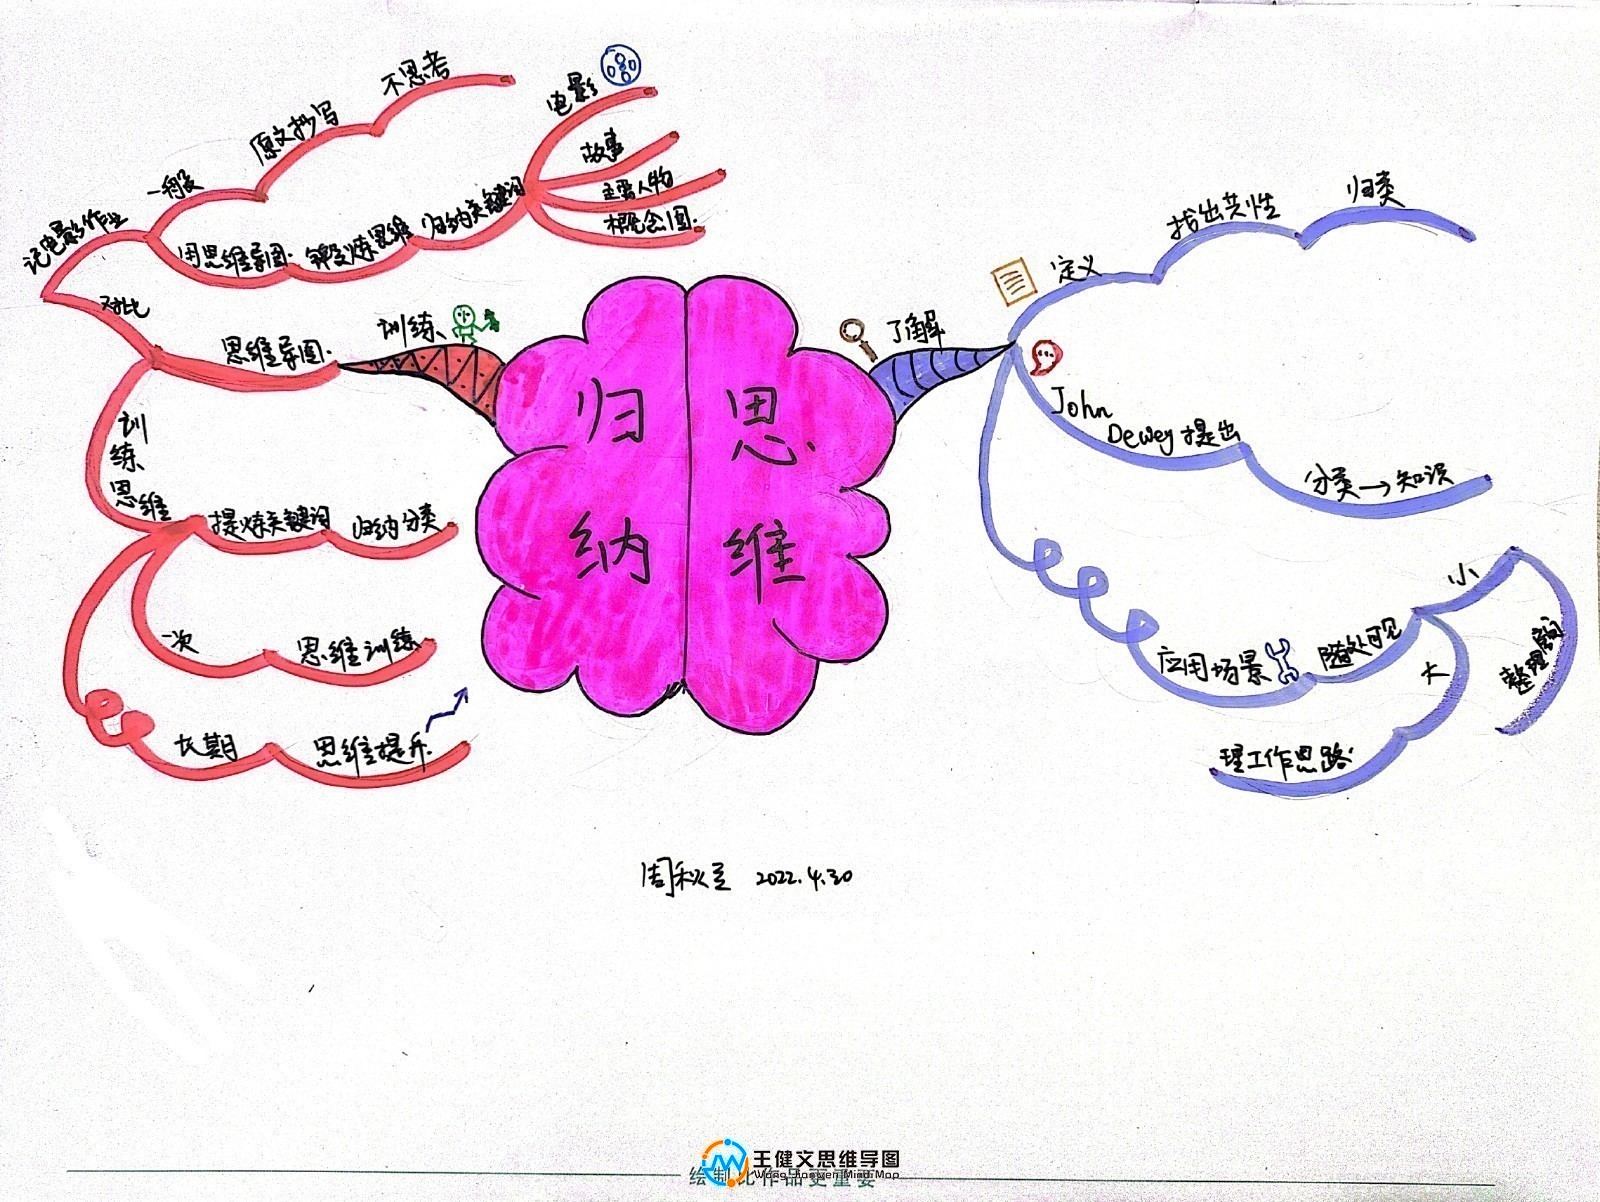 归纳
思维
了解
定义
找出共性
归类
John
Dewey提出
分类→知识
应用场景
随处可见
小
大
理工作思路
训练
思维导图
对比
记电影作业
一般
原文抄写
不思考
用思维导图
锻炼思维
归纳关键词
电影
故事
主要人物
概念图
训练思维
提炼关键词
归纳分类
一次
思维训练
长期
思维提升
2022.4.30
王健文思维导图
Wang Jianwen Mind Map
绘制比作品更重要